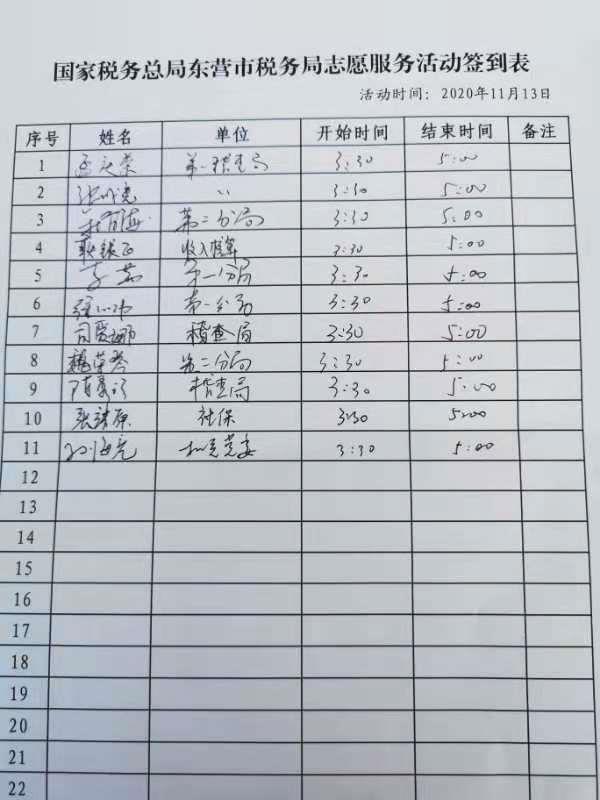 国家税务总局东营市税务局志愿服务活动签到表
活动时间：2020年11月13日
序号 姓名 单位 开始时间 结束时间 备注
1 第一稽查局 3:30 5:00
2 〃 3:30 5:00
3 第二分局 3:30 5:00
4 收入核算 3:30 5:00
5 李 第一分局 3:30 5:00
6 第一分局 3:30 5:00
7 稽查局 3:30 5:00
8 第二分局 3:30 5:00
9 稽查局 3:30 5:00
10 张 社保 3:30 5:00
11 孙海亮 机关党委 3:30 5:00
12
13
14
15
16
17
18
19
20
21
22